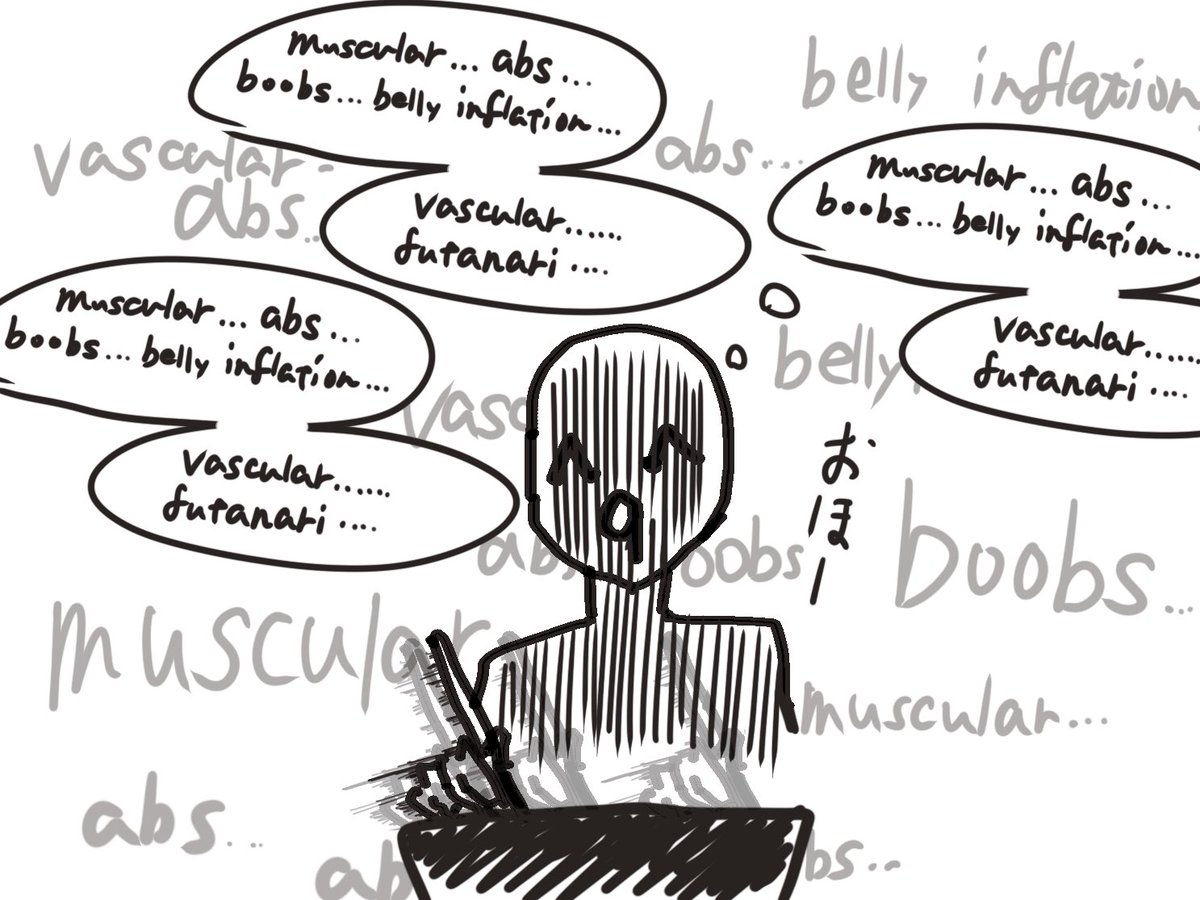 muscular... abs...
boobs... belly inflation...
vascular......
futanari....
belly inflation
vascular..
abs...
abs...
muscular... abs...
boobs... belly inflation...
vascular......
futanari....
muscular... abs...
boobs... belly inflation...
vascular......
futanari....
belly
vasc
おほー
abs
boobs
boobs...
muscular
muscular...
abs...
ab
bs...